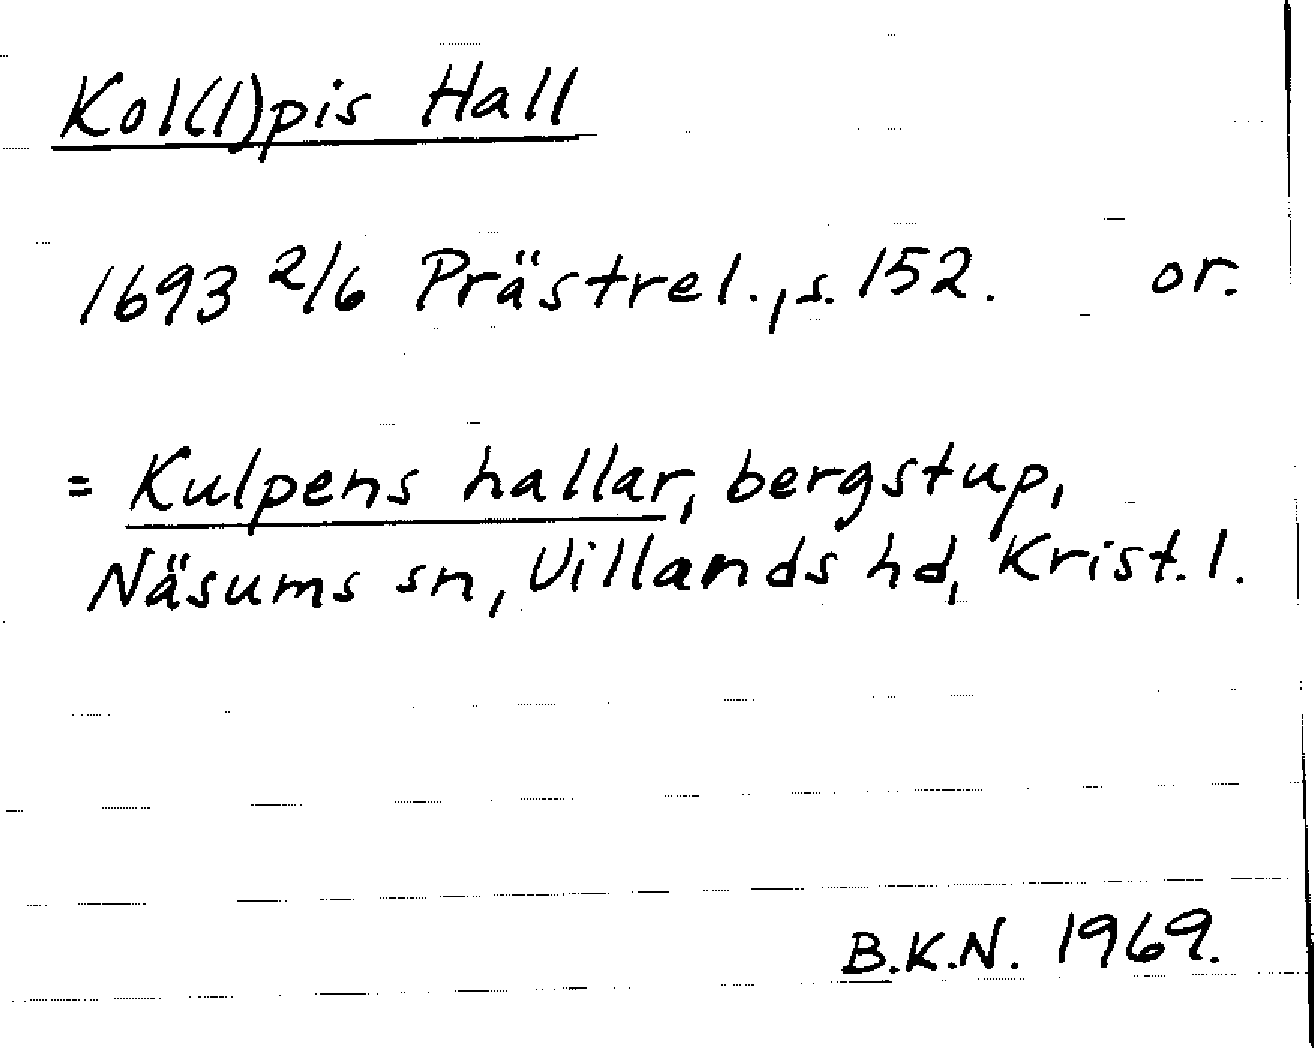 Kol(l)pis Hall
1693 2/6 Prästrel., s. 152. or.
= Kulpens hallar, bergstup,
Näsums sn, Villands hd, Krist. l.
B.K.N. 1969.